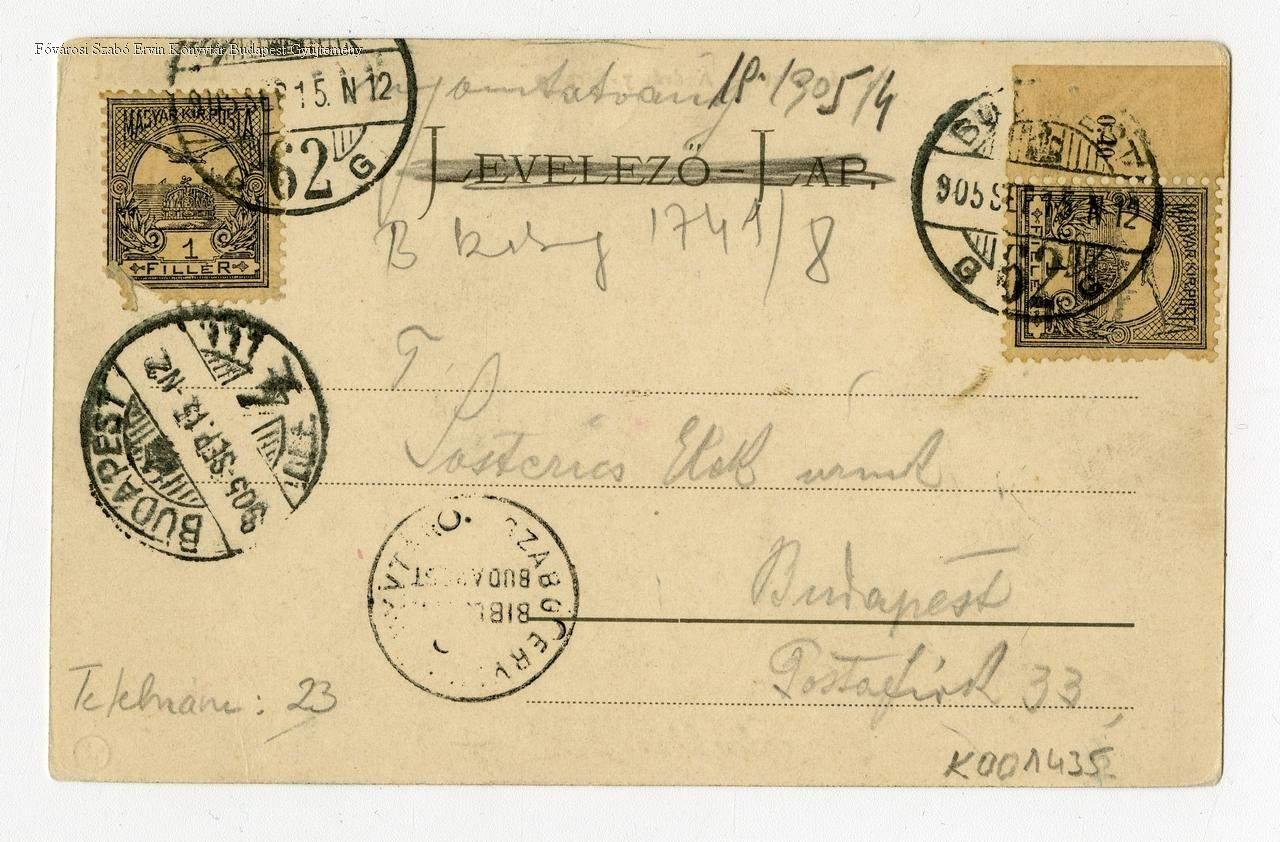 Fővárosi Szabó Ervin Könyvtár Budapest Gyűjtemény
Nyomtatvány 18. 1905/4
LEVELEZŐ-LAP.
B 1741/8
MAGYAR KIR. POSTA
1
FILLÉR
905 SEP 15. N 12
62
G G
BUDAPEST
905 SEP 15 N 12
62
G G
MAGYAR KIR. POSTA
1
FILLÉR
BUDAPEST
905-SEP. 15.-N2
T.
Elek urnak
SZABÓ ERV
BIBL
BUDAPEST
Budapest
Postafiók 33
23
K001435